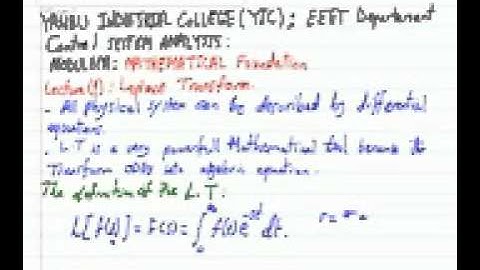 YANBU INDUSTRIAL COLLEGE (YIC); EEET Departement
Control SYSTEM ANALYSIS:
MODULE#1: MATHEMATICAL Foundation
Lecture(1): Laplace Transform.
- All physical system can be described by differential
equations.
- L.T is a very powerfull Mathematical tool because it
Transform ODEs into algebric equation.
The definition of the L.T.
L[f(t)] = F(s) = ∫₀^∞ f(t) e^-st dt.